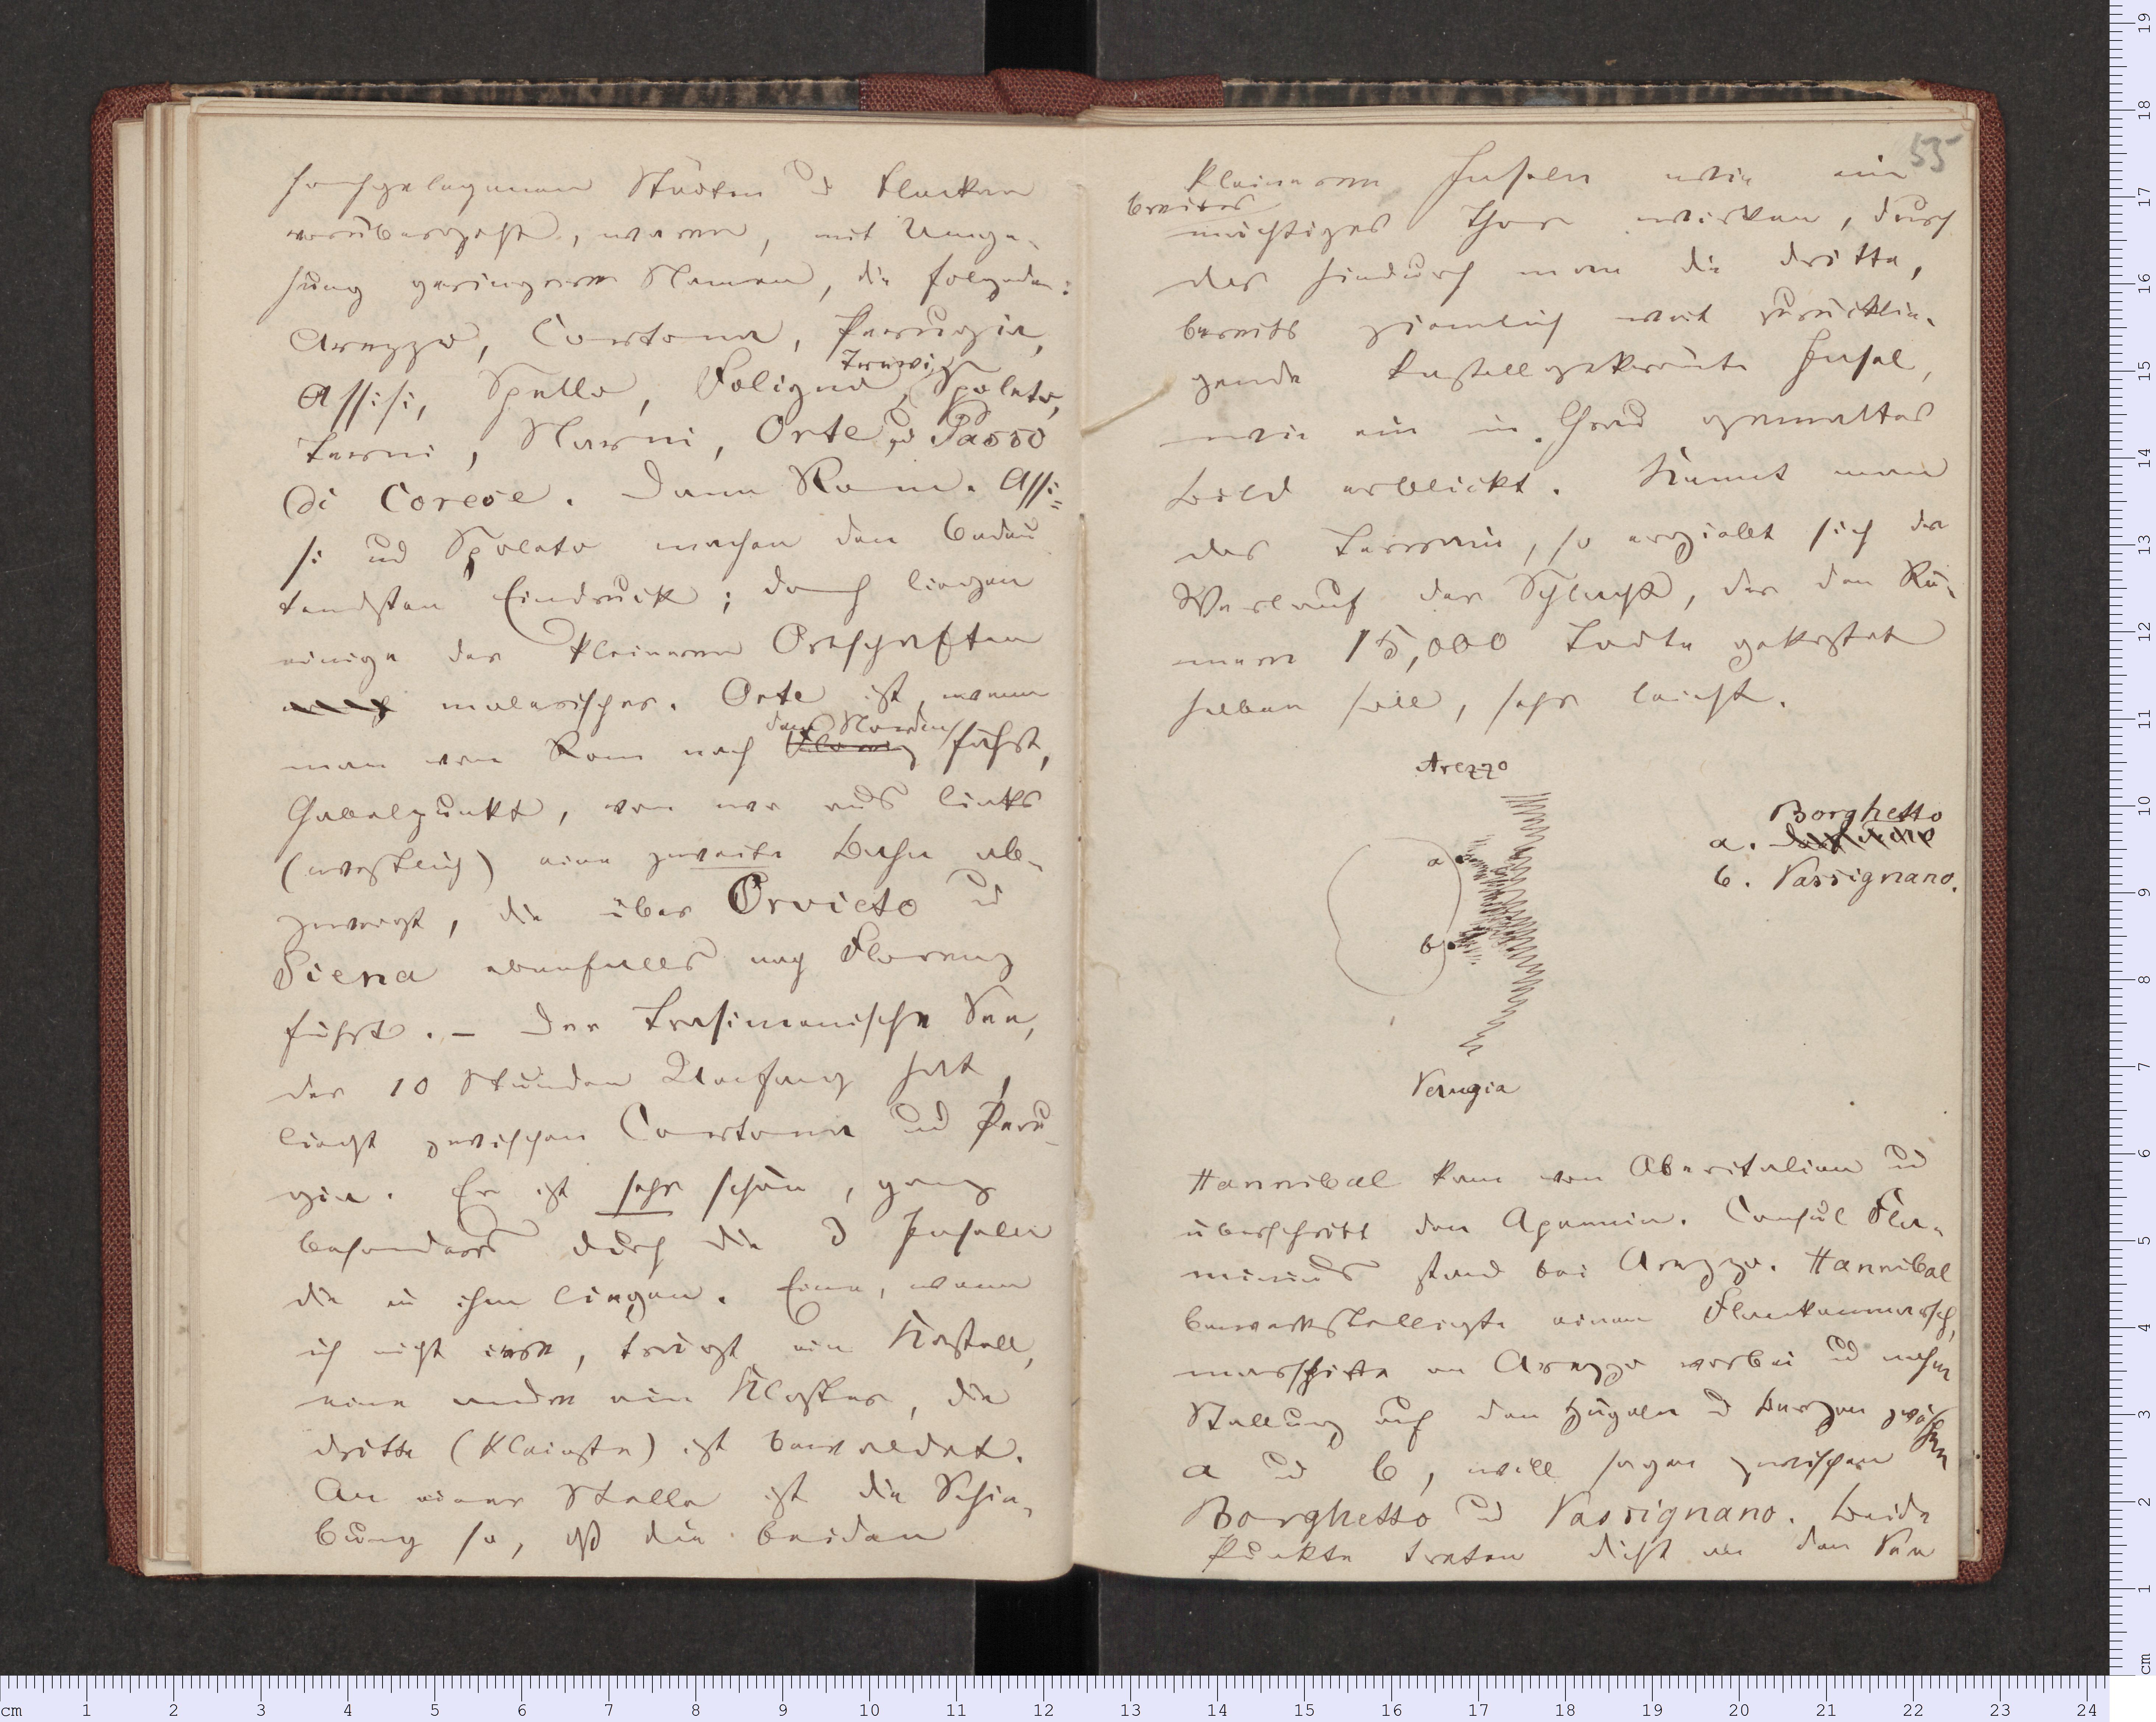 hochgelegenen Städten u Flecken
vorübergeht, waren, mit Umge-
hung geringerer Namen, die folgenden:
Arezzo, Cortona, Perugia,
Trevi,
Assisi, Spello, Foligno, Spoleto,
Terni, Narni, Orte, ud Passo
di Corese. Dann Rom. Assi=
si ud Spoleto machen den bedeu
tendsten Eindruck; doch liegen
einige der kleineren Ortschaften
malerischer. Orte ist, wenn
dem Norden
man von Rom nach Florenz fährt,
Gabelpunkt, von wo aus links
(westlich) eine zweite Bahn ab-
zweigt, die über Orvieto ud
Siena ebenfalls nach Florenz
führt. – Der Trasimenische See,
der 10 Stunden Umfang hat,
liegt zwischen Cortona ud Peru-
gia. Er ist sehr schön, ganz
besonders durch die 3 Inseln
die in ihm liegen. Eine, wenn
ich nicht irre, trägt ein Kastell,
eine andre ein Kloster, die
dritte (kleinste) ist bewaldet.
An einer Stelle ist die Schie-
bung so, dß die beiden
53
kleineren Inseln wie ein
breites
mächtiges Thor wirken, durch
das hindurch man die dritte,
bereits ziemlich weit zurücklie-
gende kastellgekrönte Insel,
wie ein in Grau gemaltes
Bild erblickt. Kennt man
das Terrain, so ergiebt sich der
Verlauf der Schlacht, der den Rö-
mern 15,000 Todte gekostet
haben soll, sehr leicht.
Arezzo
Borghetto
a.
b. Passignano.
a
b
Perugia
Hannibal kam von Oberitalien ud
überschritt den Apennin. Consul Fla-
minius stand bei Arezzo. Hannibal
bewerkstelligte einen Flankenmarsch,
marschirte an Arezzo vorbei ud nahm
Stellung auf den Hügeln u Bergen zwischen
a ud b, will sagen zwischen
Borghetto ud Passignano. Beide
Punkte treten dicht an den See